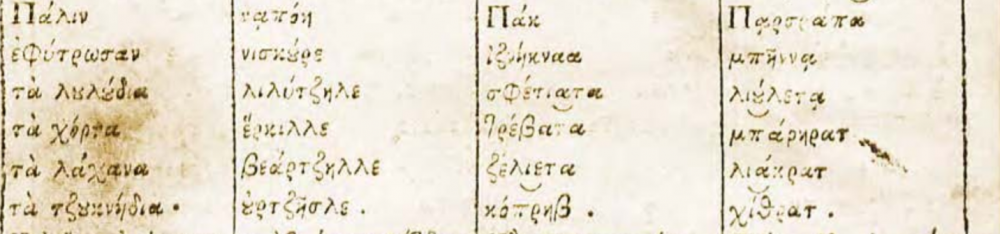 Πάλιν ναπόη Πάκ Παρσράπα
ἐφύτρωσαν νισκȣ́ρε ἰζνήκναα μπῆννᾳ
τὰ λȣλȣ́δια λιλύτζηλε σφέτιατα λιȣ́λετᾳ
τὰ χόρτα ἔρκιλλε τρέβατα μπάρηρατ
τὰ λάχανα βεάρτζηλλε ζέλιετα λιάκρατ
τὰ τζȣκνήδια . ȣ̓ρτζῆσλε . κόπρηβ . χίθρατ .